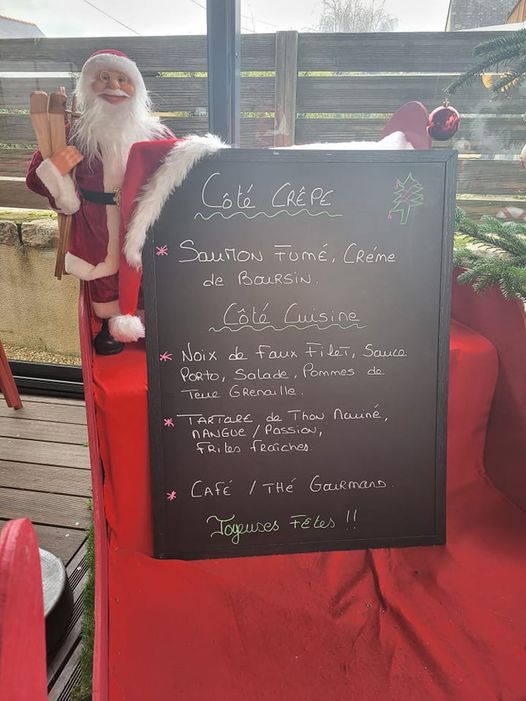 Côté CRÊPE
* SAUMON FUMÉ, CRÈME
de BOURSIN.
Côté Cuisine
* NOIX de FAUX FILET, SAUCE
PORTO, SALADE, POMMES de
Terre GRENAILLE.
* TARTARE de THON MARINÉ,
MANGUE / PASSION,
FRITES FRAÎCHES.
* CAFÉ / THÉ GOURMAND.
Joyeuses FÊTES !!